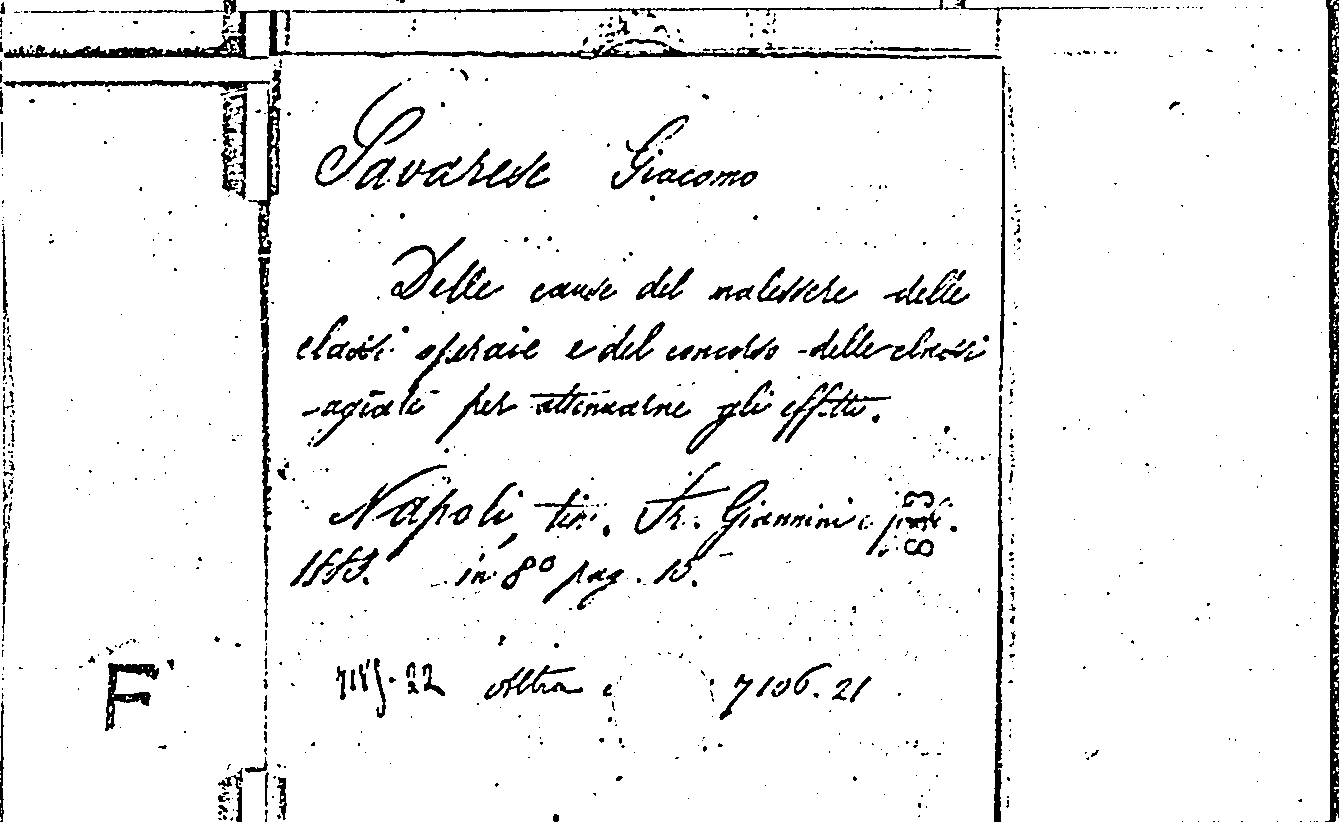 Savarese Giacomo
Delle cause del malessere delle
classi operaie e del concorso delle classi
agiate per attenuarne gli effetti.
Napoli, tip. Fr. Giannini e
1883. in 8° pag. 15.
22 Altra 7106.21
F